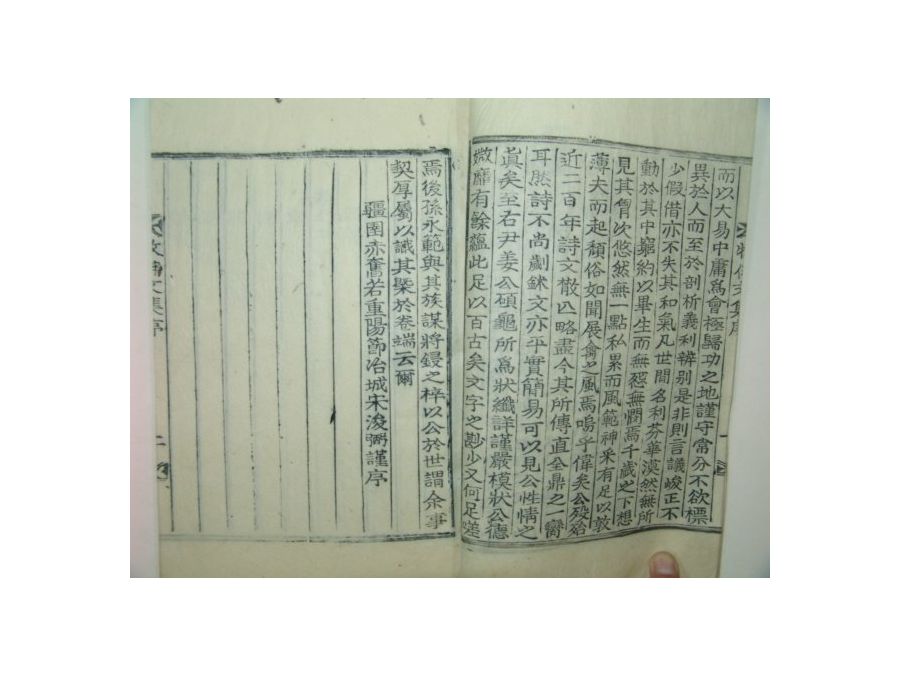 而以大易中庸爲會極歸功之地謹守常分不欲標
異於人而至於剖析義利辨别是非則言議峻正不
少假借亦不失其和氣凡世間名利芬華漠然無所
動於其中窮約以畢生而無怨無憫焉千歲之下想
見其胷次悠然無一點私累而風範神采有足以敦
薄夫而起頹俗如聞展禽之風焉嗚乎偉矣公歿給
近二百年詩文散亾略盡今其所傳直全鼎之一臠
耳然詩不尚劌鉥文亦平實簡易可以見公性情之
眞矣至右尹姜公碩龜所爲狀纖詳謹嚴模狀公德
媺靡有餘蘊此足以百古矣文字之尠少又何足嗟
焉後孫永範與其族謀將鋟之梓以公於世謂余事
契厚屬以識其槩於卷端云爾
疆圉赤奮若重陽節冶城宋浚弼謹序
文集序
二